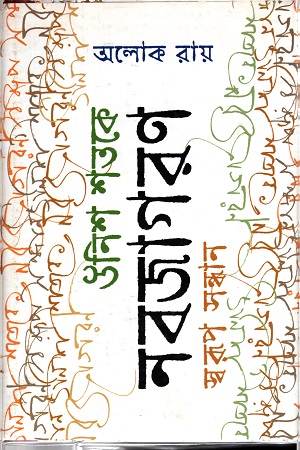 অলোক রায়
উনিশ শতকে
নবজাগরণ
স্বরূপ সন্ধান